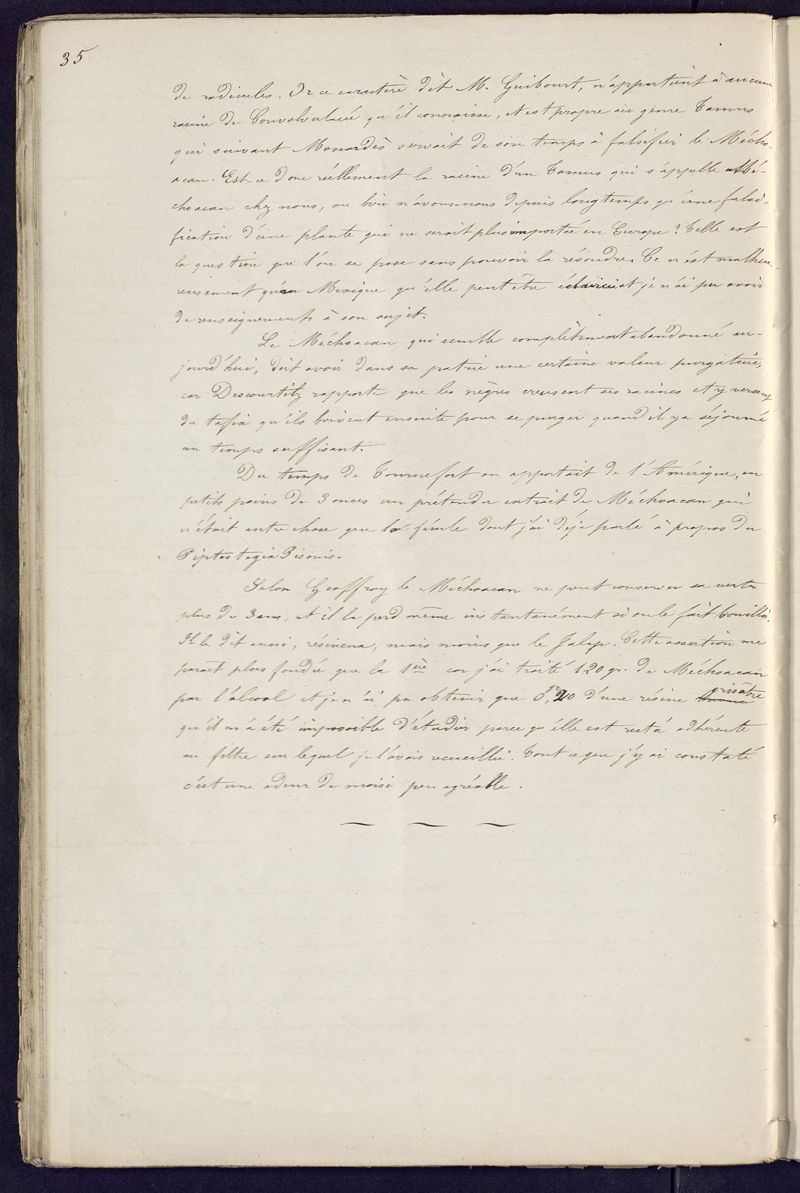 35
de radicules. Or ce caractère dit M. Guibourt, n'appartient à aucune
racine de Convolvulacée qu'il connaisse, et est propre au genre Tamus
qui suivant Monardès servait de son temps à falsifier le Mécho-
acan. Est-ce donc réellement la racine d'un Tamus qui s'appelle Mé-
choacan chez nous, ou bien n'avons-nous depuis longtemps qu'une falsi-
fication d'une plante qui ne serait plus importée en Europe? Telle est
la question que l'on se pose sans pouvoir la résoudre. Ce n'est malheu-
reusement qu'au Mexique qu'elle peut être éclaircie et je n'ai pu avoir
de renseignements à son sujet.
Le Méchoacan qui semble complètement abandonné au-
jourd'hui, doit avoir dans sa patrie une certaine valeur purgative,
car Descourtilz rapporte que les nègres creusent ses racines et y versent
du tafia qu'ils boivent ensuite pour se purger quand il y a séjourné
un temps suffisant.
Du temps de Tournefort on apportait de l'Amérique, en
petits pains de 3 onces un prétendu extrait de Méchoacan qui
n'était autre chose que la fécule dont j'ai déjà parlé à propos du
Piptostegia Pisonis.
Selon Geoffroy le Méchoacan ne peut conserver sa vertu
plus de 3 ans, et il la perd même instantanément si on le fait bouillir.
Il le dit aussi, résineux, mais moins que le Jalap. Cette assertion me
paraît plus fondée que la 1ère car j'ai traité 120 gr. de Méchoacan
par l'alcool et je n'ai pu obtenir que 0,gr 20 d'une résine grisâtre
qu'il m'a été impossible d'étudier parce qu'elle est resté adhérente
au filtre sur lequel je l'avais recueillie. Tout ce que j'y ai constaté
c'est une odeur de moisi peu agréable.